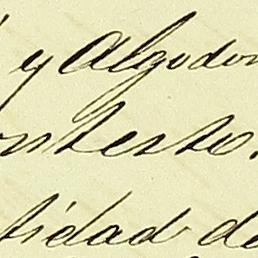 y Algodon
ontesto.
tidad de